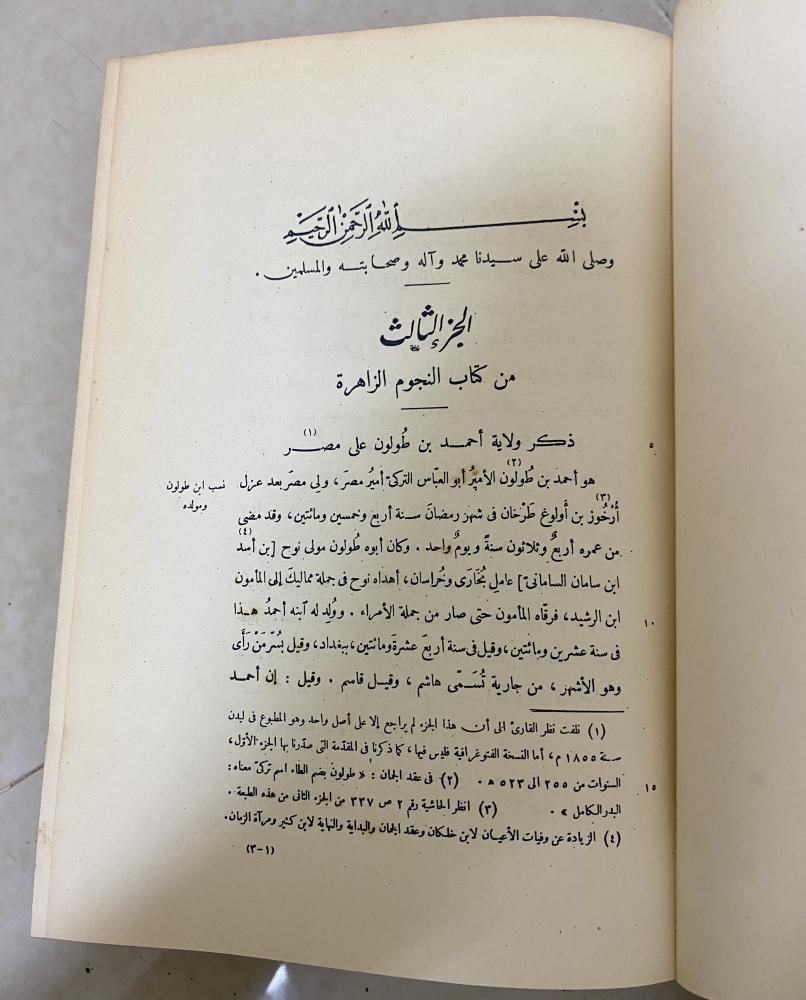 بسم الله الرحمن الرحيم
وصلى الله على سيدنا محمد وآله وصحابته والمسلمين .
الجزء الثالث
من كتاب النجوم الزاهرة
ذكر ولاية أحمد بن طُولون على مصر (١)
هو أحمد بن طُولون (٢) الأميرُ أبو العبّاس التركىّ أميرُ مصرَ، ولِى مصرَ بعد عزل
نسب ابن طولون
ومولده
أُرْخُوز (٣) بن أُولوغ طَرْخان فى شهر رمضانَ سنة أربع وخمسين ومائتين، وقد مضى
من عمره أربعٌ وثلاثون سنةً ويومٌ واحد . وكان أبوه طُولون مولى نوح [بن أسد (٤)
ابن سامان السامانىّ] عاملِ بُخَارَى وخُراسان، أهداه نوح فى جملة مماليكَ إلى المأمون
ابن الرشيد، فرقّاه المأمون حتى صار من جملة الأمراء . ووُلِد له آبنه أحمدُ هذا
فى سنة عشرين ومائتين، وقيل فى سنة أربعَ عشرةَ ومائتين، ببغداد، وقيل بسُرّمَنْ رَأَى
وهو الأشهر ، من جارية تُسَمّى هاشم ، وقيل قاسم . وقيل : إن أحمد
٥
١٠
١٥
(١) نلفت نظر القارئ الى أن هذا الجزء لم يراجع إلا على أصل واحد وهو المطبوع فى ليدن
سنة ١٨٥٥ م، أما النسخة الفتوغرافية فليس فيها، كما ذكرنا فى المقدّمة التى صدّرنا بها الجزء الأوّل،
السنوات من ٢٥٥ الى ٥٢٣ ه . (٢) فى عقد الجمان : « طولون بضم الطاء اسم تركىّ معناه :
البدر الكامل » . (٣) انظر الحاشية رقم ٢ ص ٣٣٧ من الجزء الثانى من هذه الطبعة .
(٤) الزيادة عن وفيات الأعيان لابن خلكان وعقد الجمان والبداية والنهاية لابن كثير ومرآة الزمان.
(٣-١)